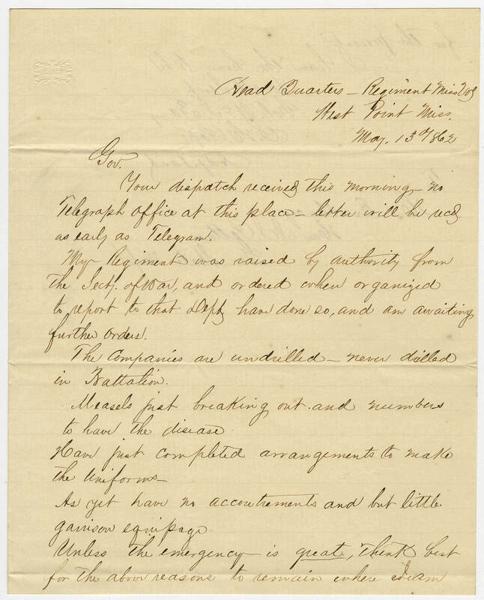 Head Quarters – Regiment Miss Vols
West Point Miss.
May. 13th 1862
Gov.
Your dispatch received this morning – no
Telegraph Office at this place – letter will be recd
as early as Telegram.
My Regiment was raised by authority from
the Secty. of War, and ordered when organized
to report to that Dept, have done so, and am awaiting
further orders.
The Companies are undrilled – never drilled
in Battalion.
Measels just breaking out and numbers
to have the disease
Have just completed arrangements to make
the Uniforms –
As yet have no accoutrements and but little
garrison equipage
Unless the emergency is great, think best
for the above reasons to remain where I am